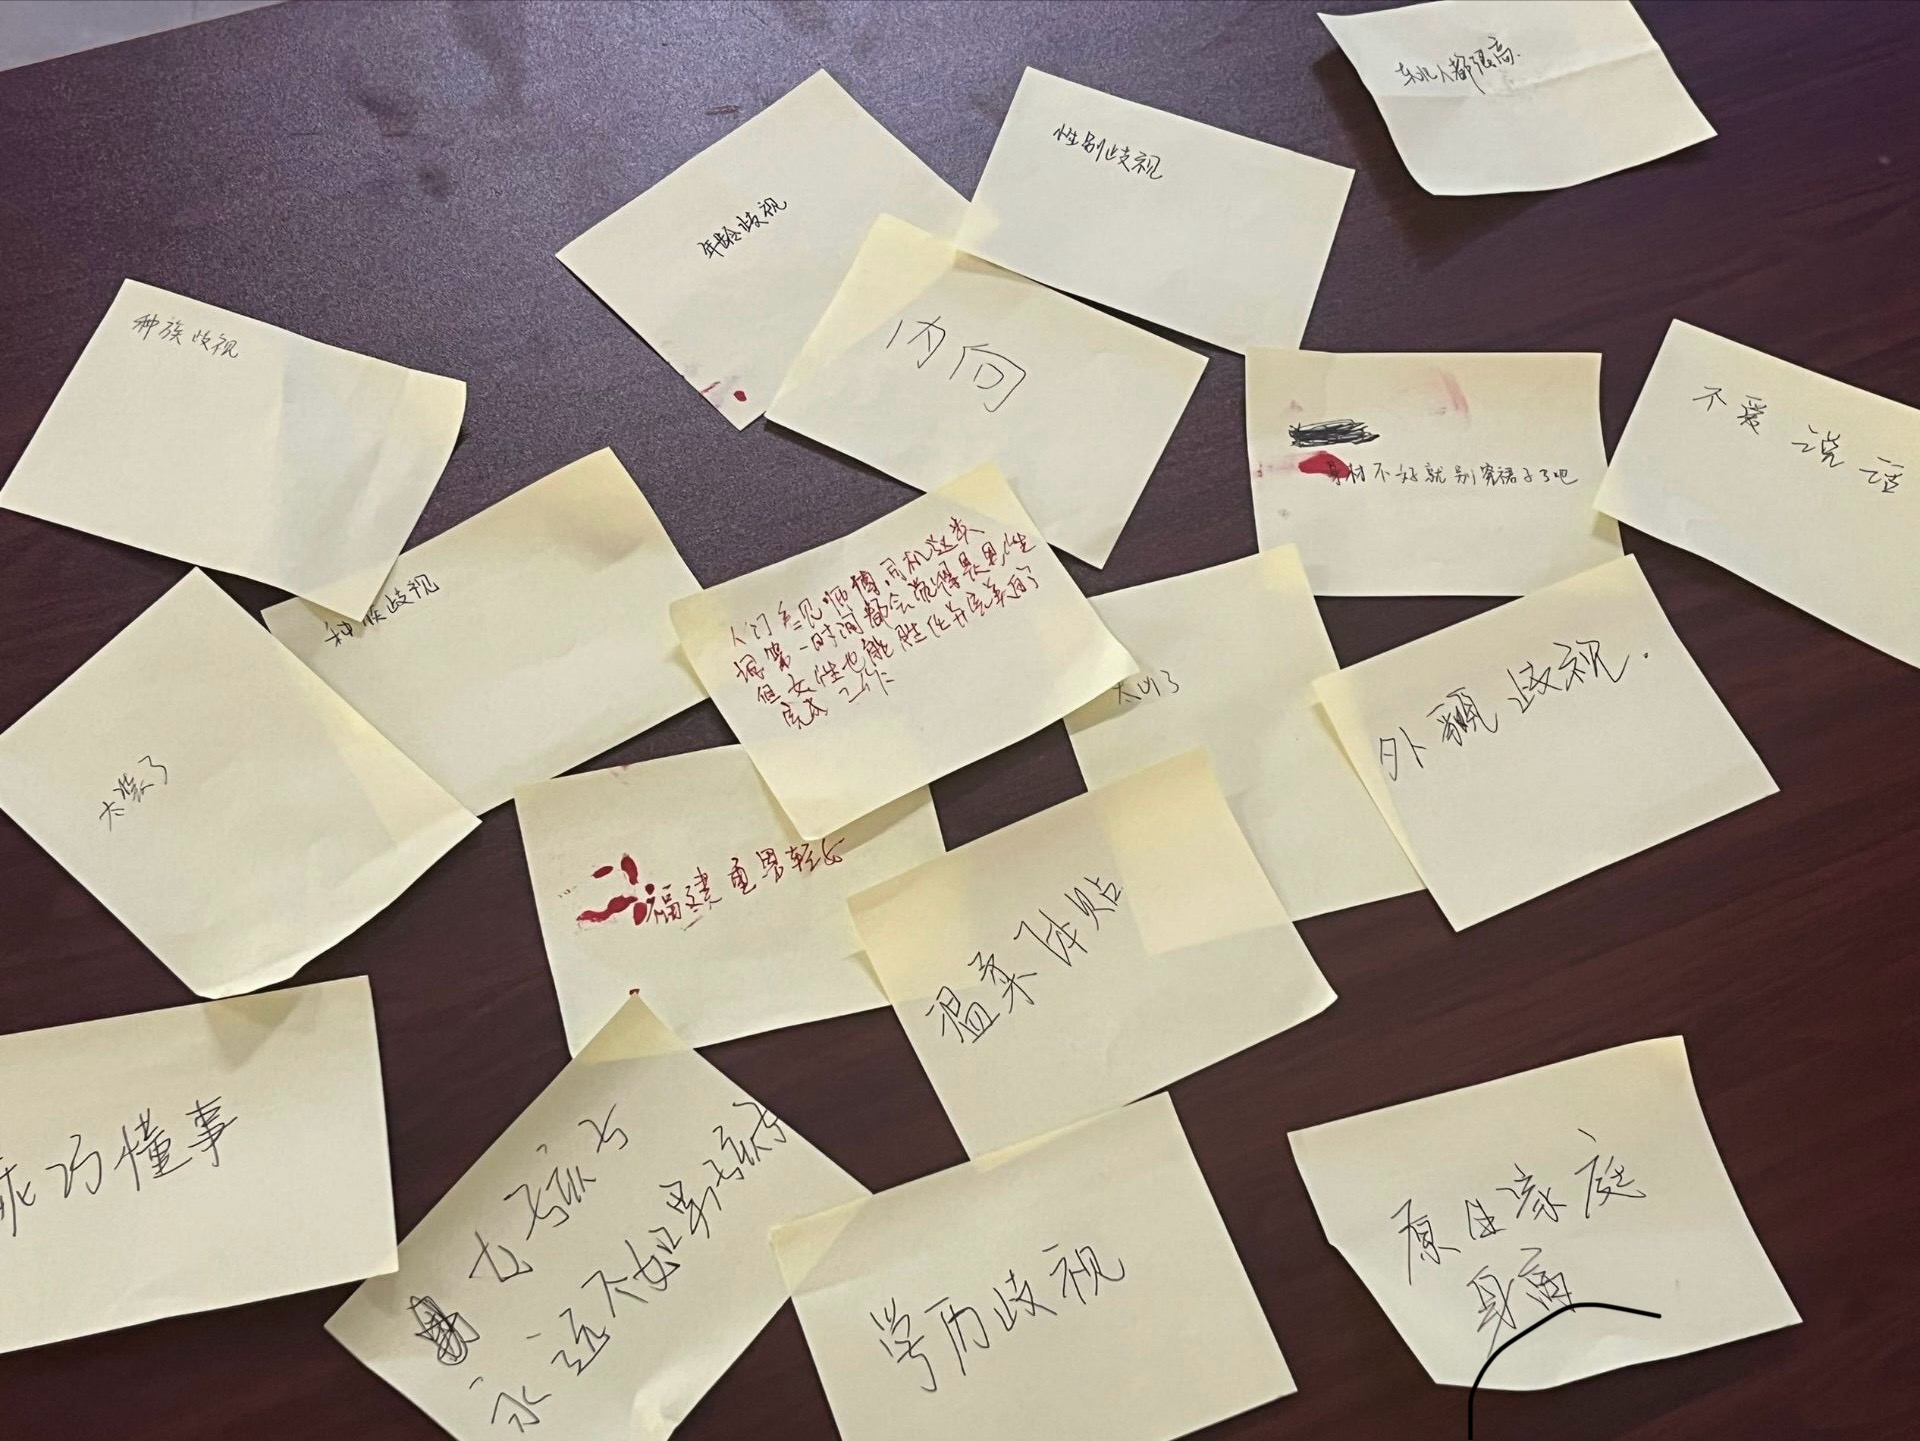 东北人都很高.
性别歧视
年龄歧视
种族歧视
内向
不爱说话
身材不好就别穿裙子了吧
种族歧视
人们看见师傅,司机这类
词第一时间都会觉得是男性
但女性也能胜任并完美的
完成工作
外貌歧视.
太装了
福建重男轻女
温柔体贴
乖巧懂事
女孩子
永远不如男孩子
学历歧视
原生家庭
身高